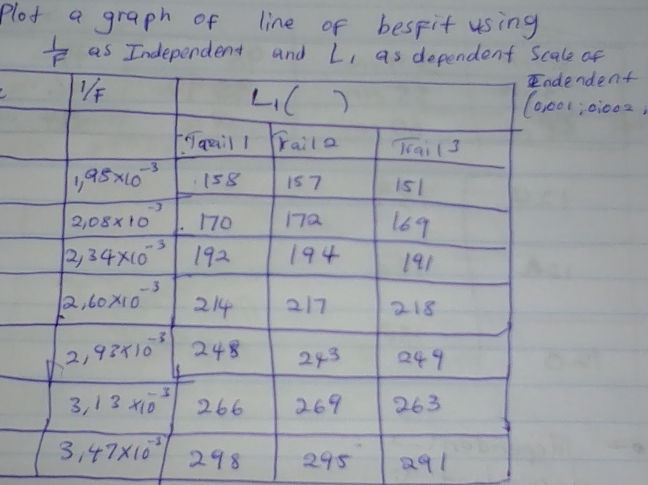 Plot a graph of line of besfit using
1/F as Independent and L, as dependent Scale of
Endendent
(0,001; 0,002,
1/F L1( )
Trail 1 Trail 2 Trail 3
1,95×10⁻³ 158 157 151
2,08×10⁻³ 170 172 169
2,34×10⁻³ 192 194 191
2,60×10⁻³ 214 217 218
2,93×10⁻³ 248 243 249
3,13×10⁻³ 266 269 263
3,47×10⁻³ 298 295 291